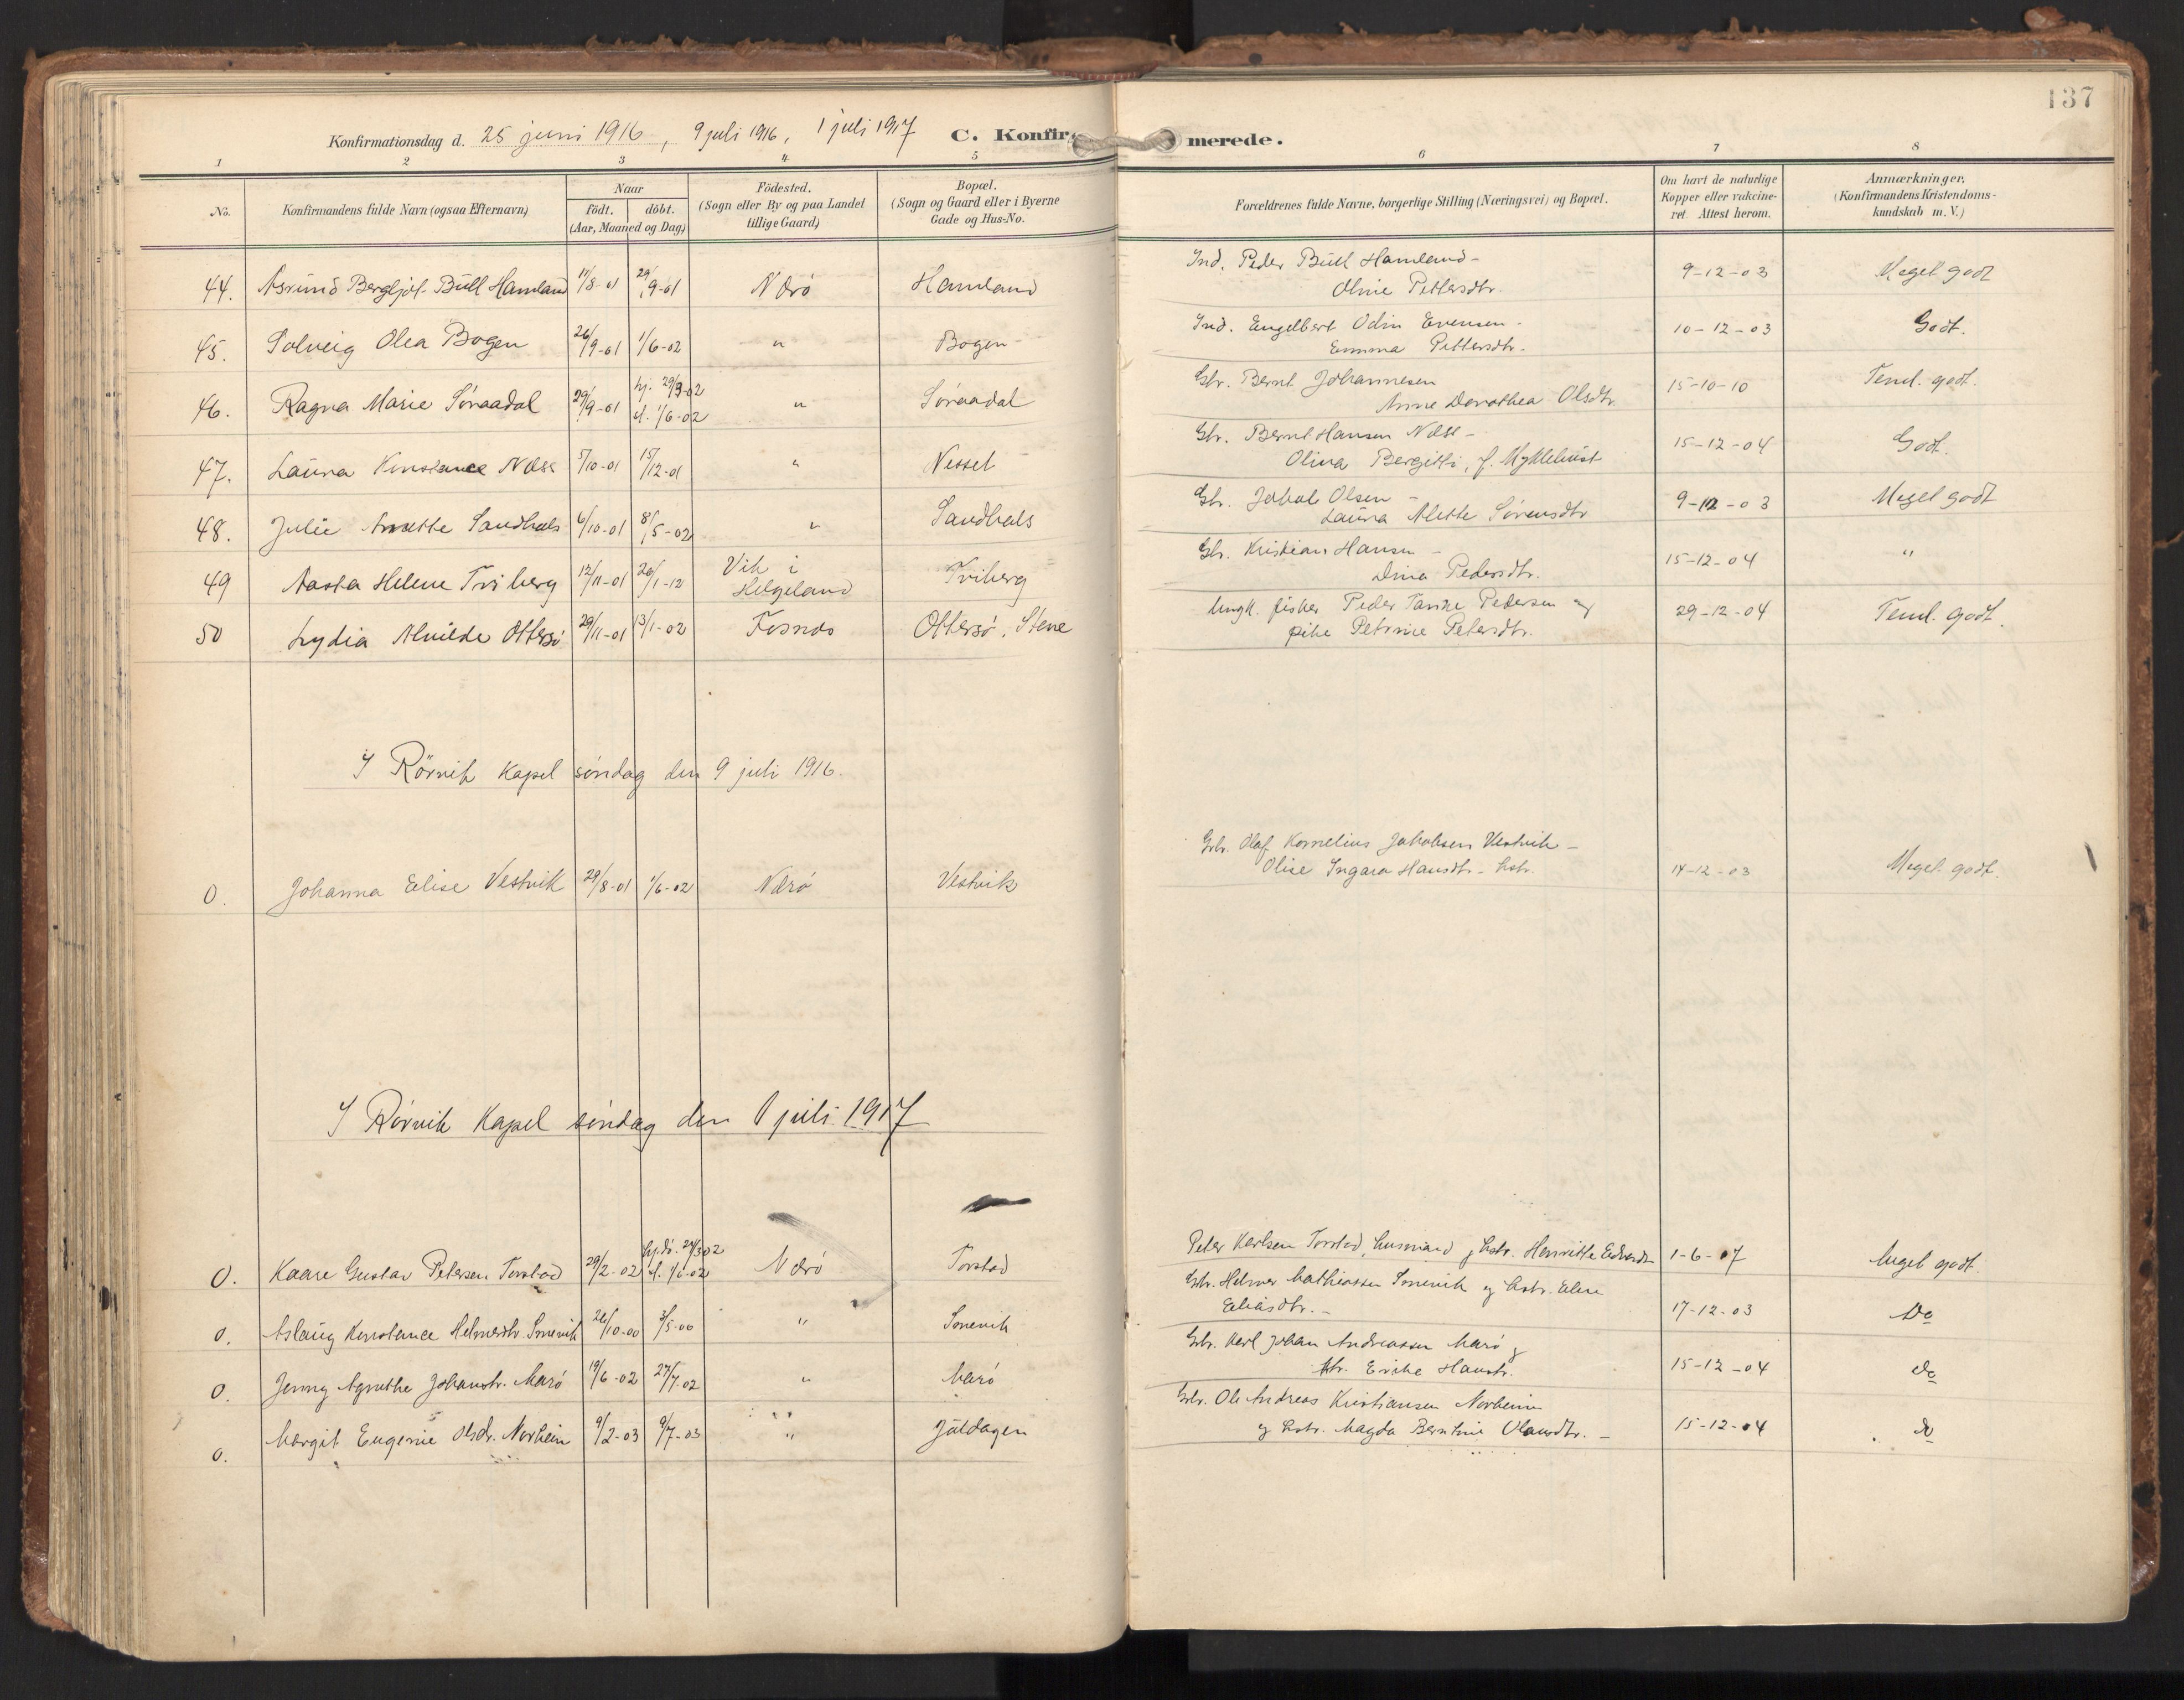 137
Konfirmationsdag d. 25 juni 1916, 9 juli 1916, 1 juli 1917
C. Konfirmerede.
1 2 3 4 5 6 7 8
No.
Konfirmandens fulde Navn (ogsaa Efternavn)
Naar
födt. döbt.
(Aar, Maaned og Dag)
Födested.
(Sogn eller By og paa Landet
tillige Gaard)
Bopæl.
(Sogn og Gaard eller i Byerne
Gade og Hus-No.
Forældrenes fulde Navne, borgerlige Stilling (Næringsvei) og Bopæl.
Om havt de naturlige
Kopper eller vakcine-
ret. Attest herom.
Anmærkninger.
(Konfirmandens Kristendoms-
kundskab m. V.)
44. Bergljot Büll Hamland 11/8-01 29/9-01 Nærö Hamland Ind. Peder Büll Hamland - 9-12-03 Meget godt
Oline Pettersdtr.
45. Solveig Olea Bogen 26/9-01 1/6-02 " Bogen Ind. Engelbert Odin Evensen - 10-12-03 Godt.
Emma Pettersdtr.
46. Ragna Marie Söraadal 29/9-01 hj. 29/3-02 " Söraadal Gbr. Bernt Johannesen 15-10-10 Teml. godt.
st. 1/6-02 Anne Dorothea Olsdtr.
47. Laura Konstance Næss 5/10-01 15/12-01 " Nesset Gbr. Bernt Hansen Næss - 15-12-04 Godt.
Olina Bergitte, f. Myklebüst
48. Julie Anette Sandhals 6/10-01 8/5-02 " Sandhals Gbr. Jakob Olsen - 9-12-03 Meget godt
Laura Alette Sörensdtr
49 Aasta Helene Triberg 12/11-01 26/1-12 Vik i Triberg Gbr. Kristian Hansen - 15-12-04 "
Helgeland Dina Pedersdtr.
50 Lydia Alvilde Ottersö 29/11-01 13/1-02 Fosnes Ottersö, Stene Ungk. fisker Peder Pedersen og 29-12-04 Teml. godt.
pike Petrine Petersdtr.
I Rörvik Kapel söndag den 9 juli 1916.
Gbr. Olaf Kornelius Jakobsen Vestvik -
0. Johanna Elise Vestvik 29/8-01 1/6-02 Nærö Vestvik Olise Ingara Hansdtr. - hstr. 14-12-03 Meget godt.
I Rörvik Kapel söndag den 1 juli 1917
0. Kaare Gustav Petersen Torstad 29/2-02 hj.dö. 24/3 02 Nærö Torstad Peter Karlsen Torstad, husmand og hstr. Henriette Edvardsd. 1-6-07 Meget godt.
st. 1/6-02
0. Aslaug Konstance Helmersdtr. Smevik 26/10-00 3/5-00 " Smevik Gbr. Helmer Mathiassen Smevik og hstr. Elen 17-12-03 Do
Eliasdtr. -
0. Jenny Agnethe Johanstr. Marö 19/6-02 27/7-02 " Marö Gbr. Karl Johan Andreassen Marö og 15-12-04 Do
hstr. Erikke Hanstr.
0. Margit Eugenie Olsdr. Norheim 9/2-03 9/7-03 " Jäldagen Gbr. Ole Andreas Kristiansen Norheim 15-12-04 Do
og hstr. Magda Berntine Olausdtr. -